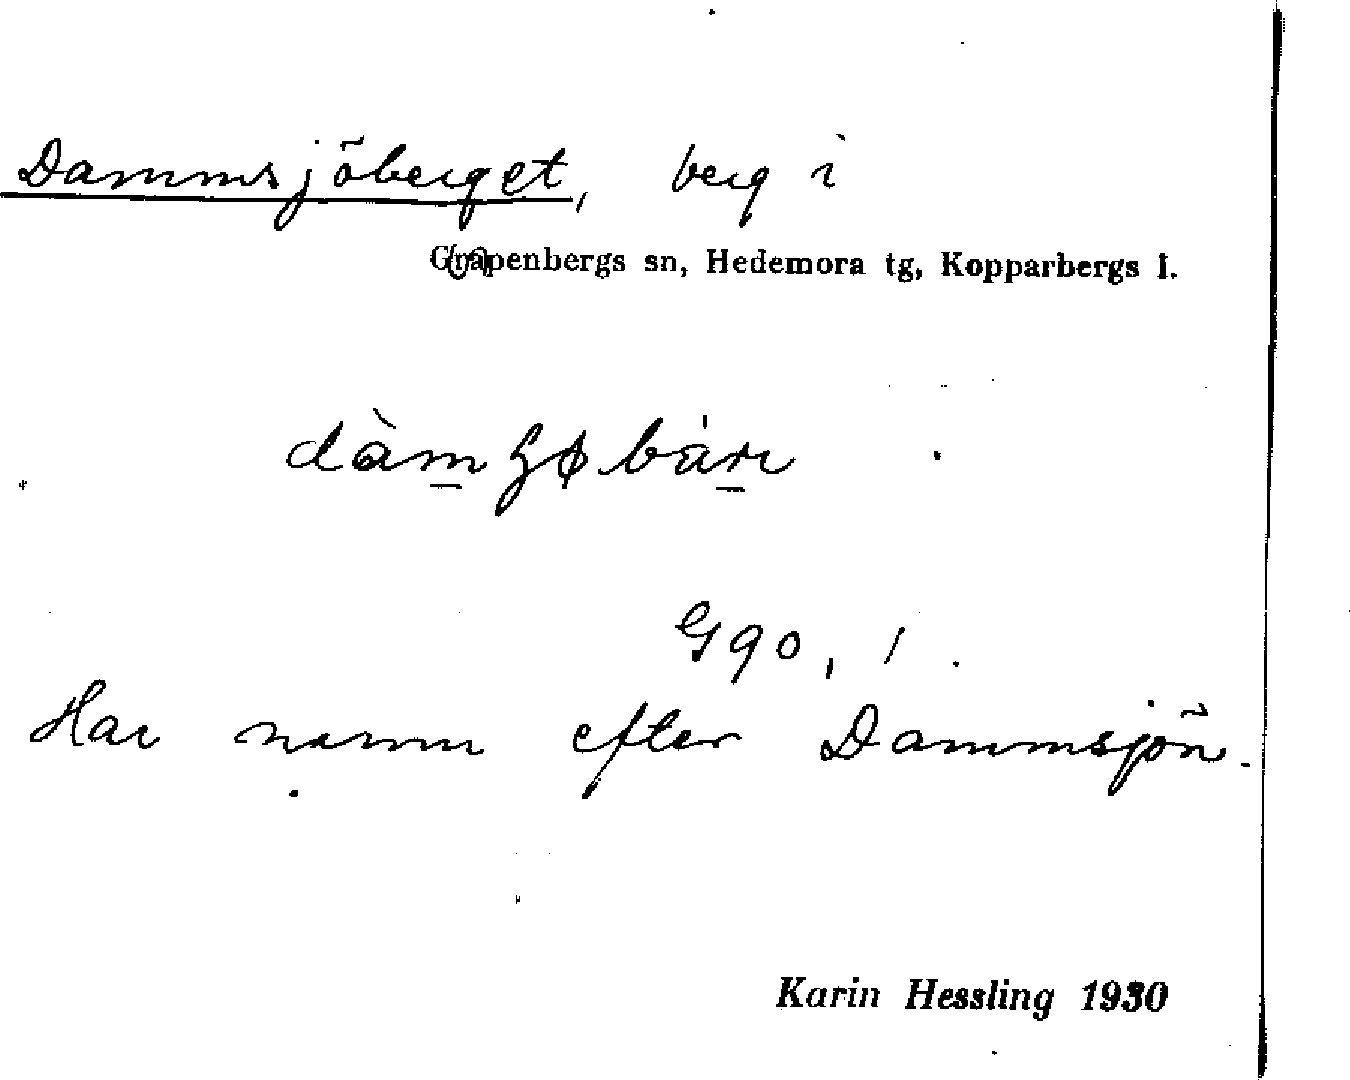 Dammsjöberget, berg i
Grapenbergs sn, Hedemora tg, Kopparbergs l.
G90, 1.
Har namn efter Dammsjön.
Karin Hessling 1930